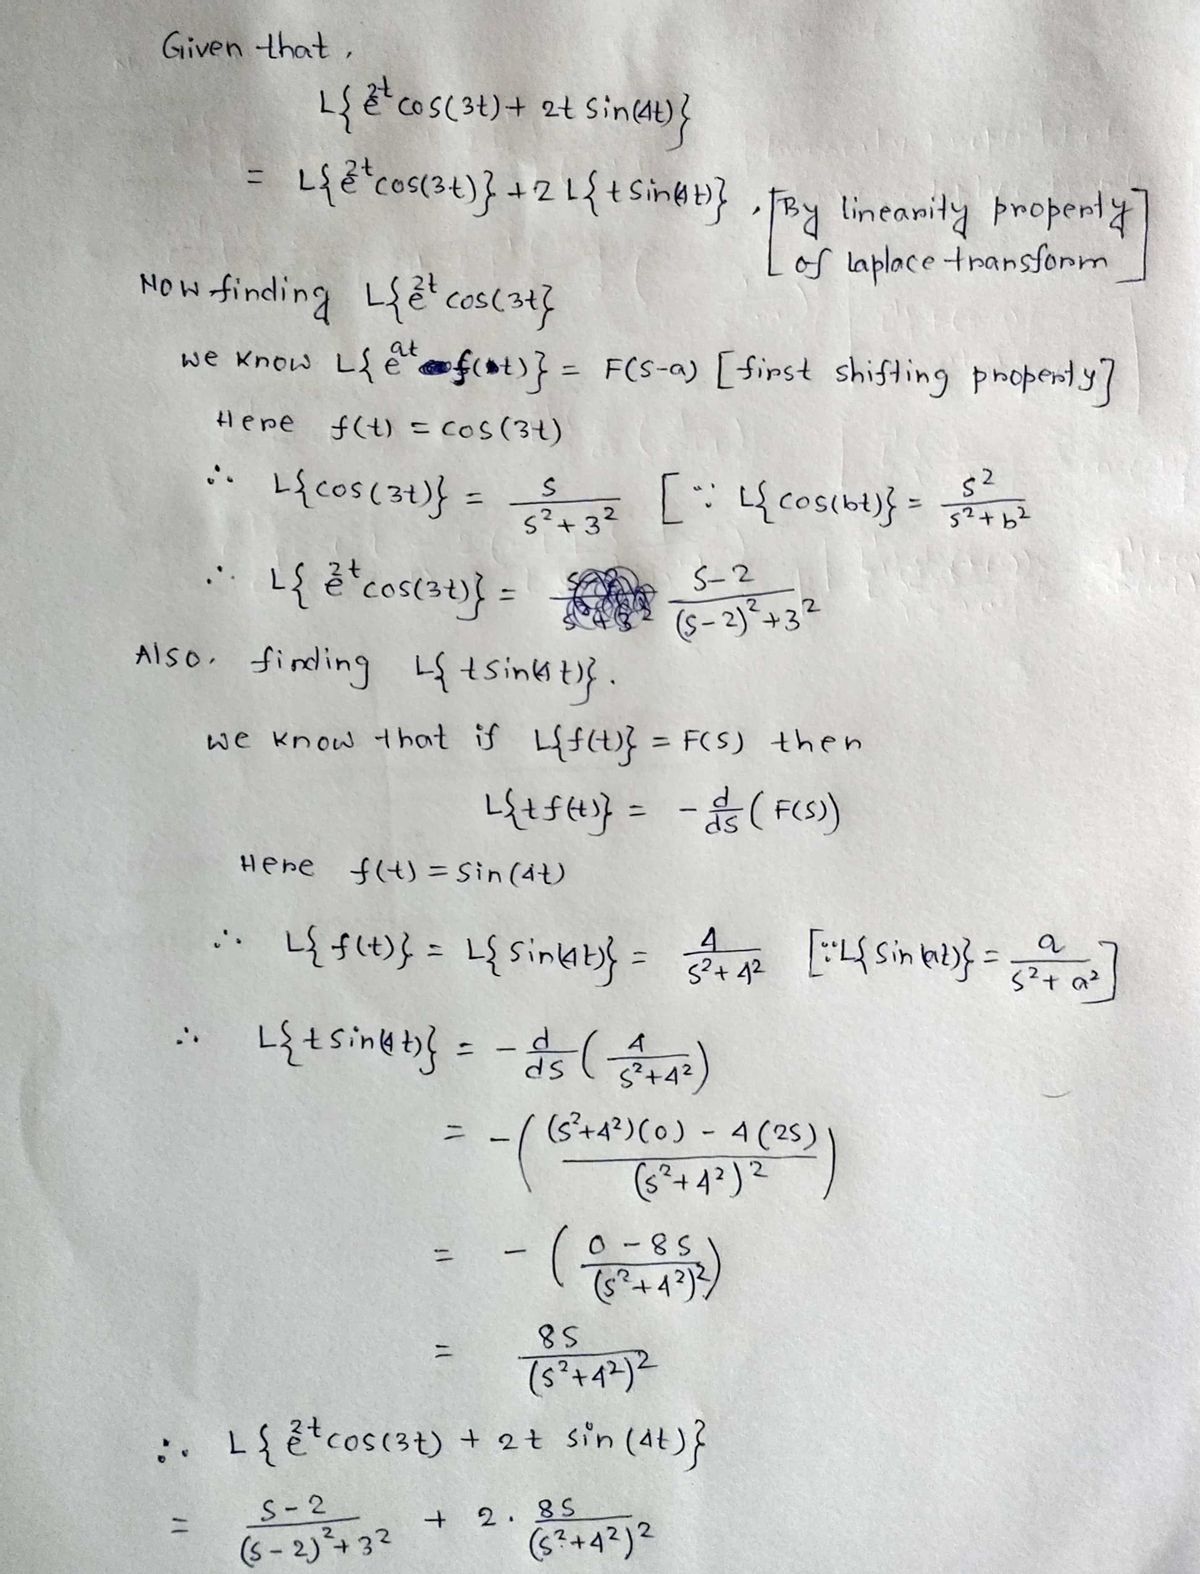 Given that,
L{e^{2t} cos(3t) + 2t sin(4t)}
= L{e^{2t} cos(3t)} + 2 L{t sin(4t)} , [By linearity property of laplace transform]
Now finding L{e^{2t} cos(3t}
we know L{e^{at} f(t)} = F(s-a) [first shifting property]
Here f(t) = cos(3t)
∴ L{cos(3t)} = s/(s²+3²) [∵ L{cos(bt)} = s²/(s²+b²)
∴ L{e^{2t} cos(3t)} = (s-2)/((s-2)²+3²)
Also, finding L{t sin(4t)}.
we know that if L{f(t)} = F(s) then
L{t f(t)} = - d/ds (F(s))
Here f(t) = sin(4t)
∴ L{f(t)} = L{sin(4t)} = 4/(s²+4²) [∵ L{sin(at)} = a/(s²+a²)]
∴ L{t sin(4t)} = - d/ds (4/(s²+4²))
= - (((s²+4²)(0) - 4(2s))/(s²+4²)²)
= - ((0 - 8s)/(s²+4²)²)
= 8s/(s²+4²)²
∴ L{e^{2t} cos(3t) + 2t sin(4t)}
= (s-2)/((s-2)²+3²) + 2 . 8s/(s²+4²)²